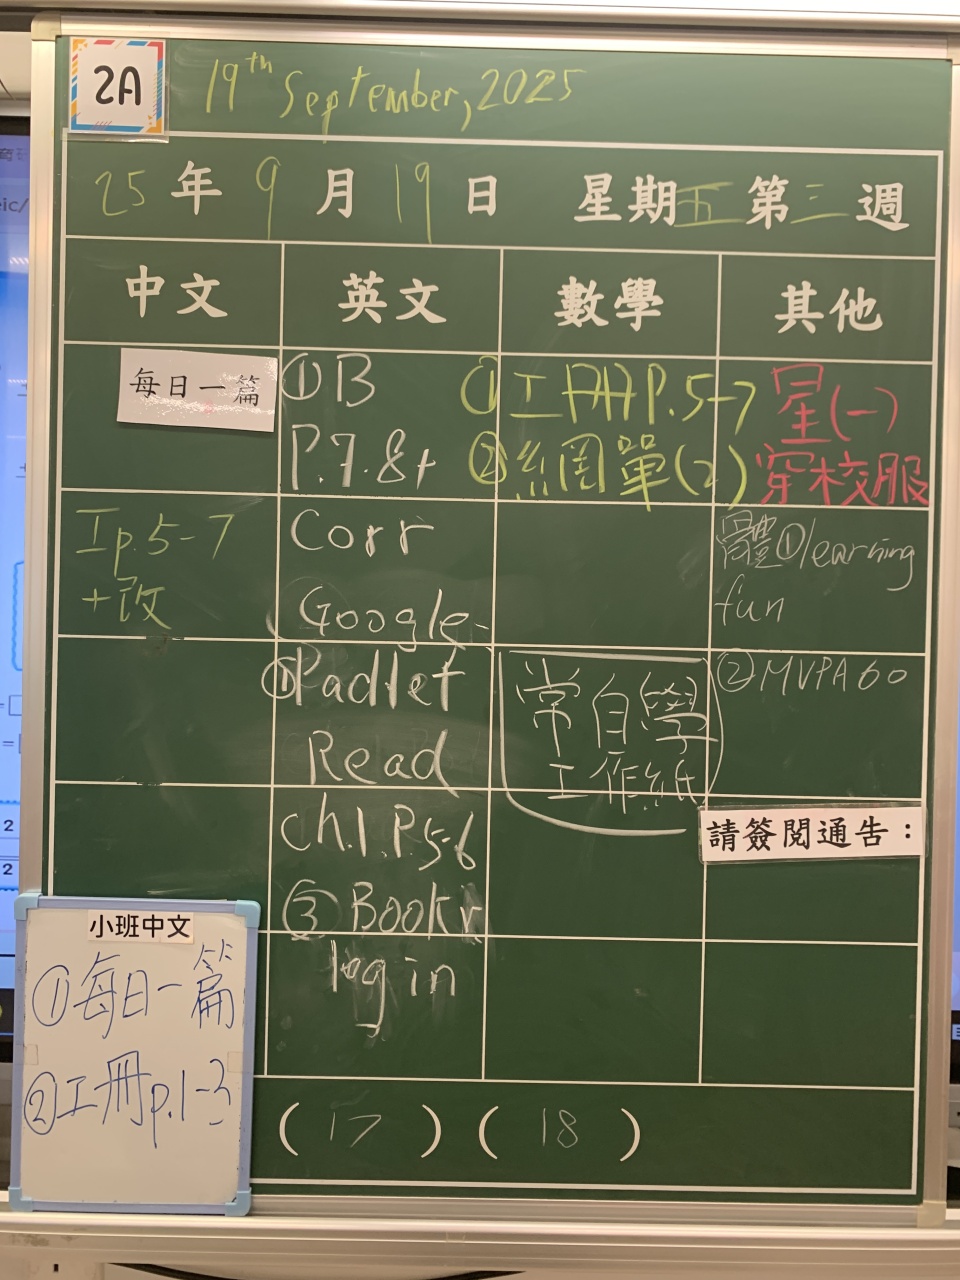 2A
19th September, 2025
25 年 9 月 19 日 星期五 第三週
中文 英文 數學 其他
每日一篇
工p.5-7
+改
①B
P.7.8+
Corr
Google
Padlet
Read
Ch.1.P.5-6
③Book
log in
①工 P.5-7
②網單(2)
常自學
工作紙
星(一)
穿校服
體①learning
fun
②MVPA60
請簽閱通告：
小班中文
①每日一篇
②工冊p.1-3
( 17 ) ( 18 )